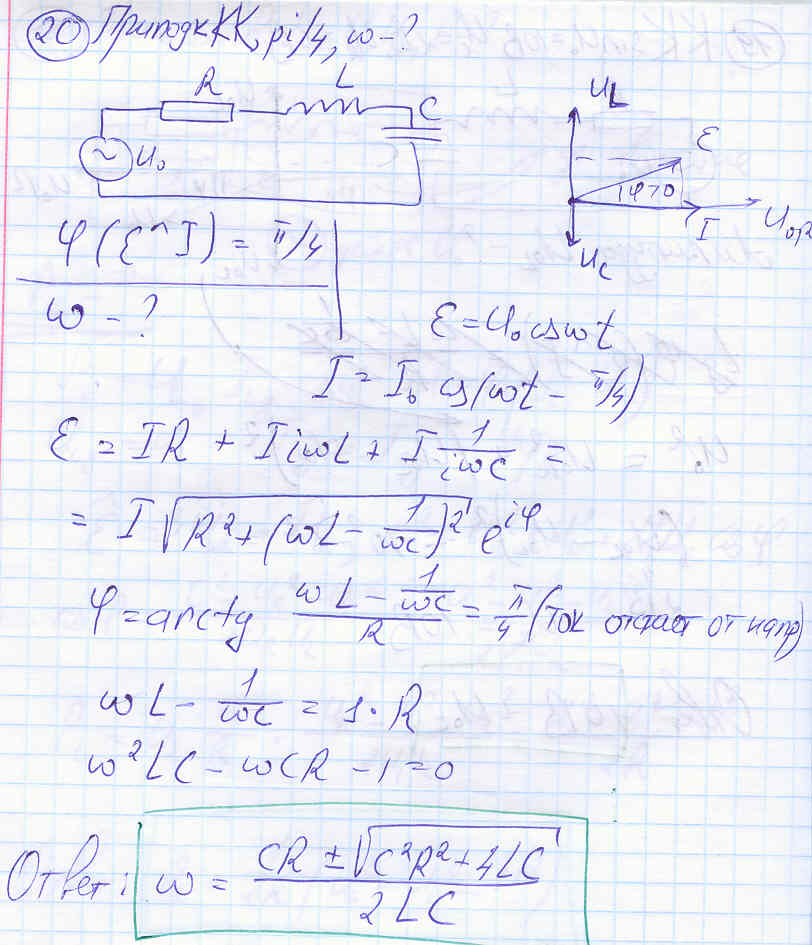 20 Приподк КК, pi/4, ω - ?
R L C
U₀
U_L
ε
φ>0
I
U_C
φ(ε^I) = π/4
ω - ?
ε = U₀ cos ωt
I = I₀ cos(ωt - π/4)
ε = IR + I iωL + I 1/(iωC) =
= I √(R² + (ωL - 1/(ωC))²) e^{iφ}
φ = arctg (ωL - 1/(ωC))/R = π/4 (ток отстает от напр)
ωL - 1/(ωC) = 1·R
ω²LC - ωCR - 1 = 0
Ответ: ω = (CR ± √(C²R² + 4LC))/(2LC)